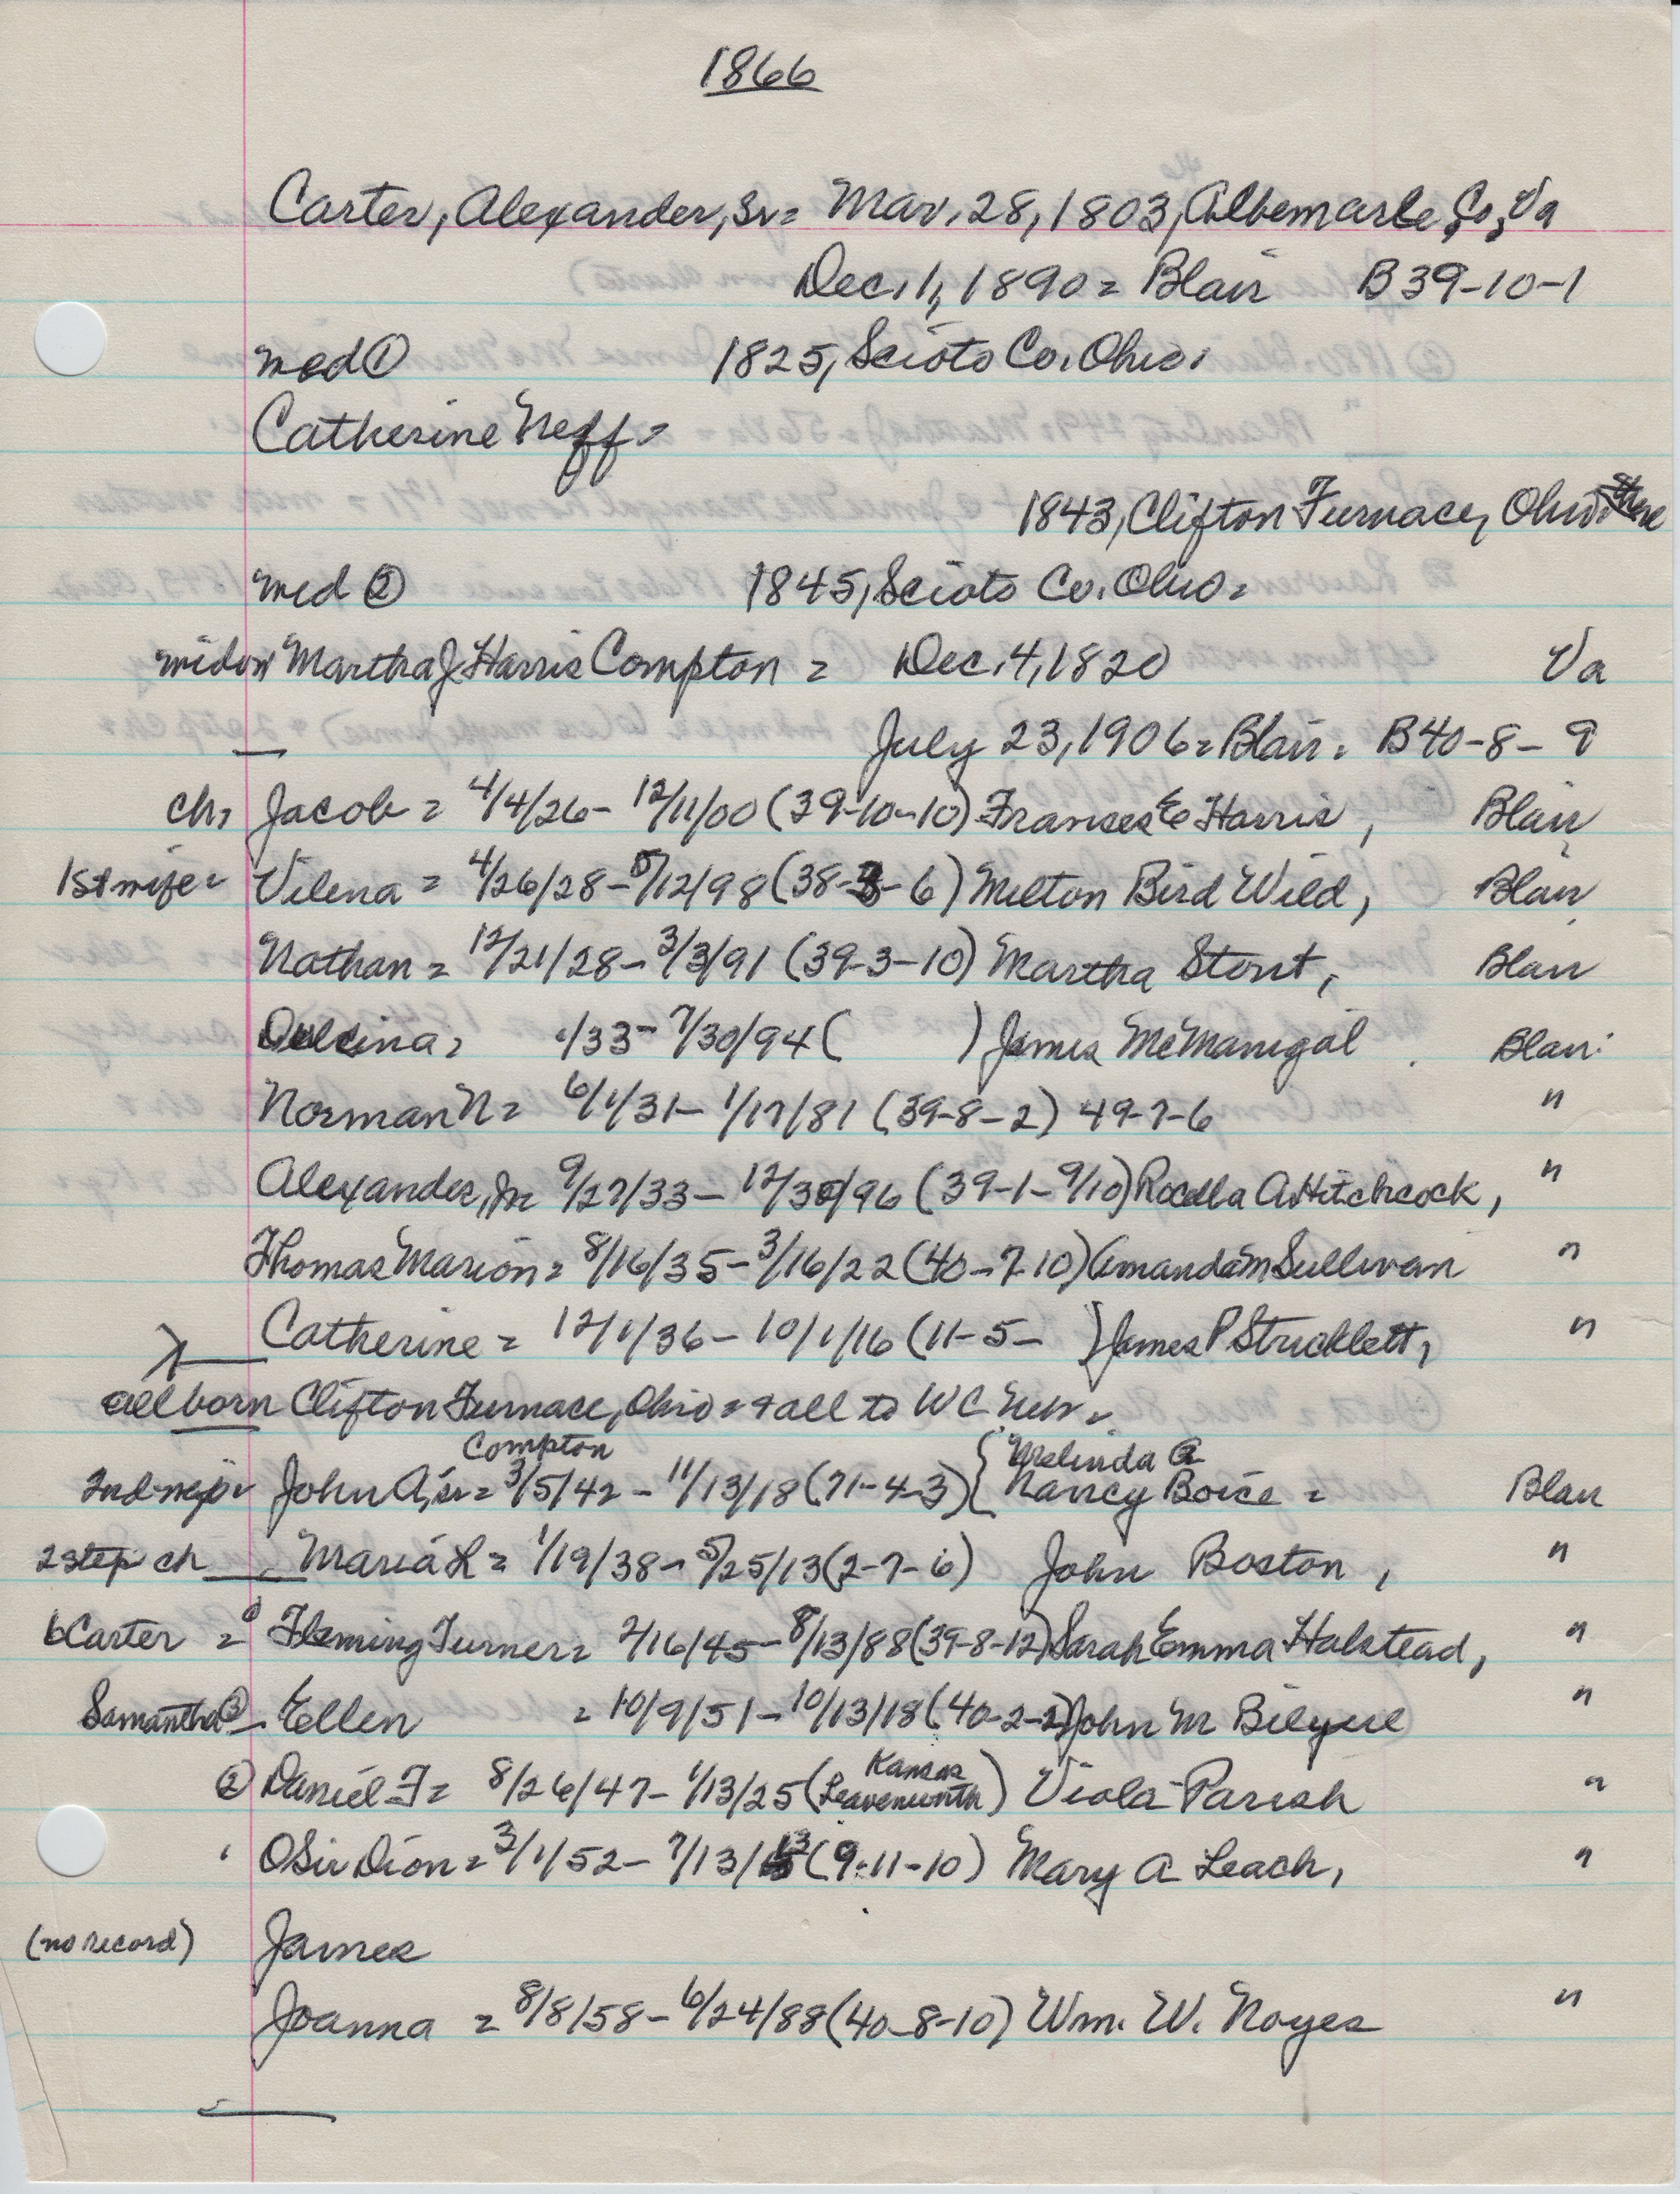 1866
Carter, Alexander, Sr = Mar. 28, 1803, Albemarle Co, Va
Dec. 1, 1890 = Blair B 39-10-1
med ① 1825, Scioto Co. Ohio.
Catherine Neff =
1843, Clifton Furnace, Ohio
med ② 1845, Scioto Co. Ohio =
widow Martha J Harris Compton = Dec. 4, 1820 Va
July 23, 1906 = Blair. B 40-8-9
ch, Jacob = 4/4/26 - 12/11/00 (39-10-10) Franses E Harris, Blair
1st wife = Vilena = 4/26/28 - 5/12/98 (38-3-6) Milton Bird Wild, Blair
Nathan = 12/21/28 - 3/3/91 (39-3-10) Martha Stout, Blair
Dulcina = /33 - 7/30/94 ( ) James McManigal Blair
Norman N = 6/1/31 - 1/17/81 (39-8-2) 49-7-6 "
Alexander, Jr 9/27/33 - 12/30/96 (39-1-9/10) Rocella A Hitchcock, "
Thomas Marion = 8/16/35 - 3/16/22 (40-7-10) Amanda M Sullivan "
Catherine = 12/1/36 - 10/1/16 (11-5- ) James P Stricklett, "
all born Clifton Furnace, Ohio = & all to W C Nebr.
Compton
2nd wife John A, Sr = 3/5/42 - 11/13/18 (71-4-3) { Melinda A
Nancy Boice = Blair
2 step ch Maria L = 1/19/38 - 5/25/13 (2-7-6) John Boston, "
6 Carter = Fleming Turner = 2/16/45 - 8/13/88 (39-8-12) Sarah Emma Halstead, "
Samantha ③ Ellen = 10/9/51 - 10/13/18 (40-2-2) John M Bilyeu "
② Daniel F = 8/26/47 - 1/13/25 (Kansas Leavenworth) Viola Parish "
O Sir Dion = 3/1/52 - 7/13/13 (9-11-10) Mary A Leach, "
(no record) James
Joanna = 8/8/58 - 6/24/88 (40-8-10) Wm. W. Noyes "